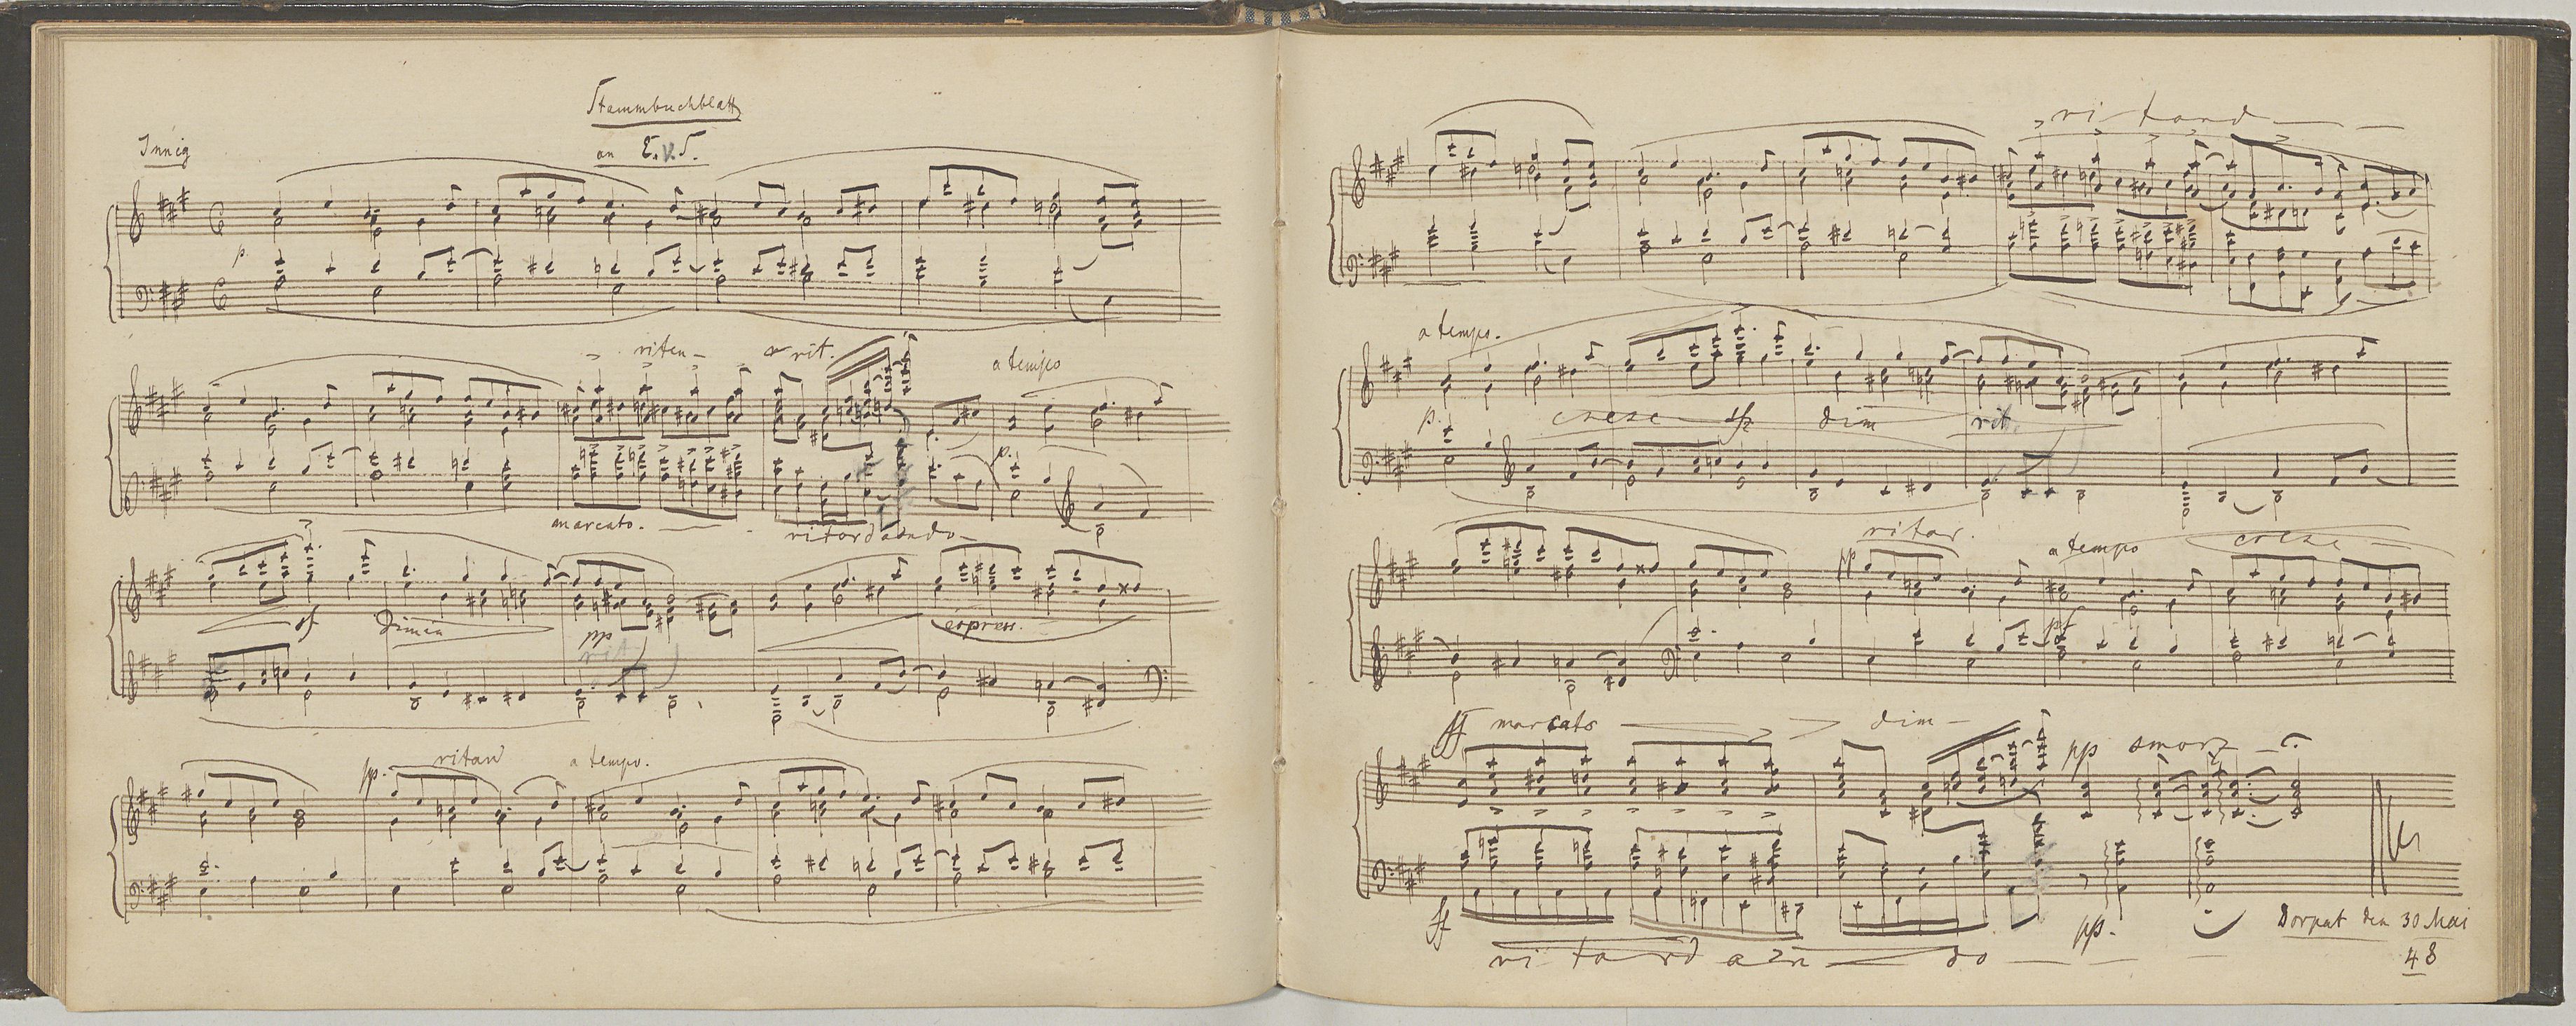 Stammbuchblatt
Innig
an E. v. S.
p.
riten- rit. a tempo
p.
marcato. ritardando
sf Dimin pp rit espress.
pp. ritard a tempo.
ritard
a tempo.
p. cresc sfz dim rit
ritar. a tempo cresc
pp pf
ff marcato dim- pp smorz
ff pp. Dorpat den 30 Mai
ritardando 48